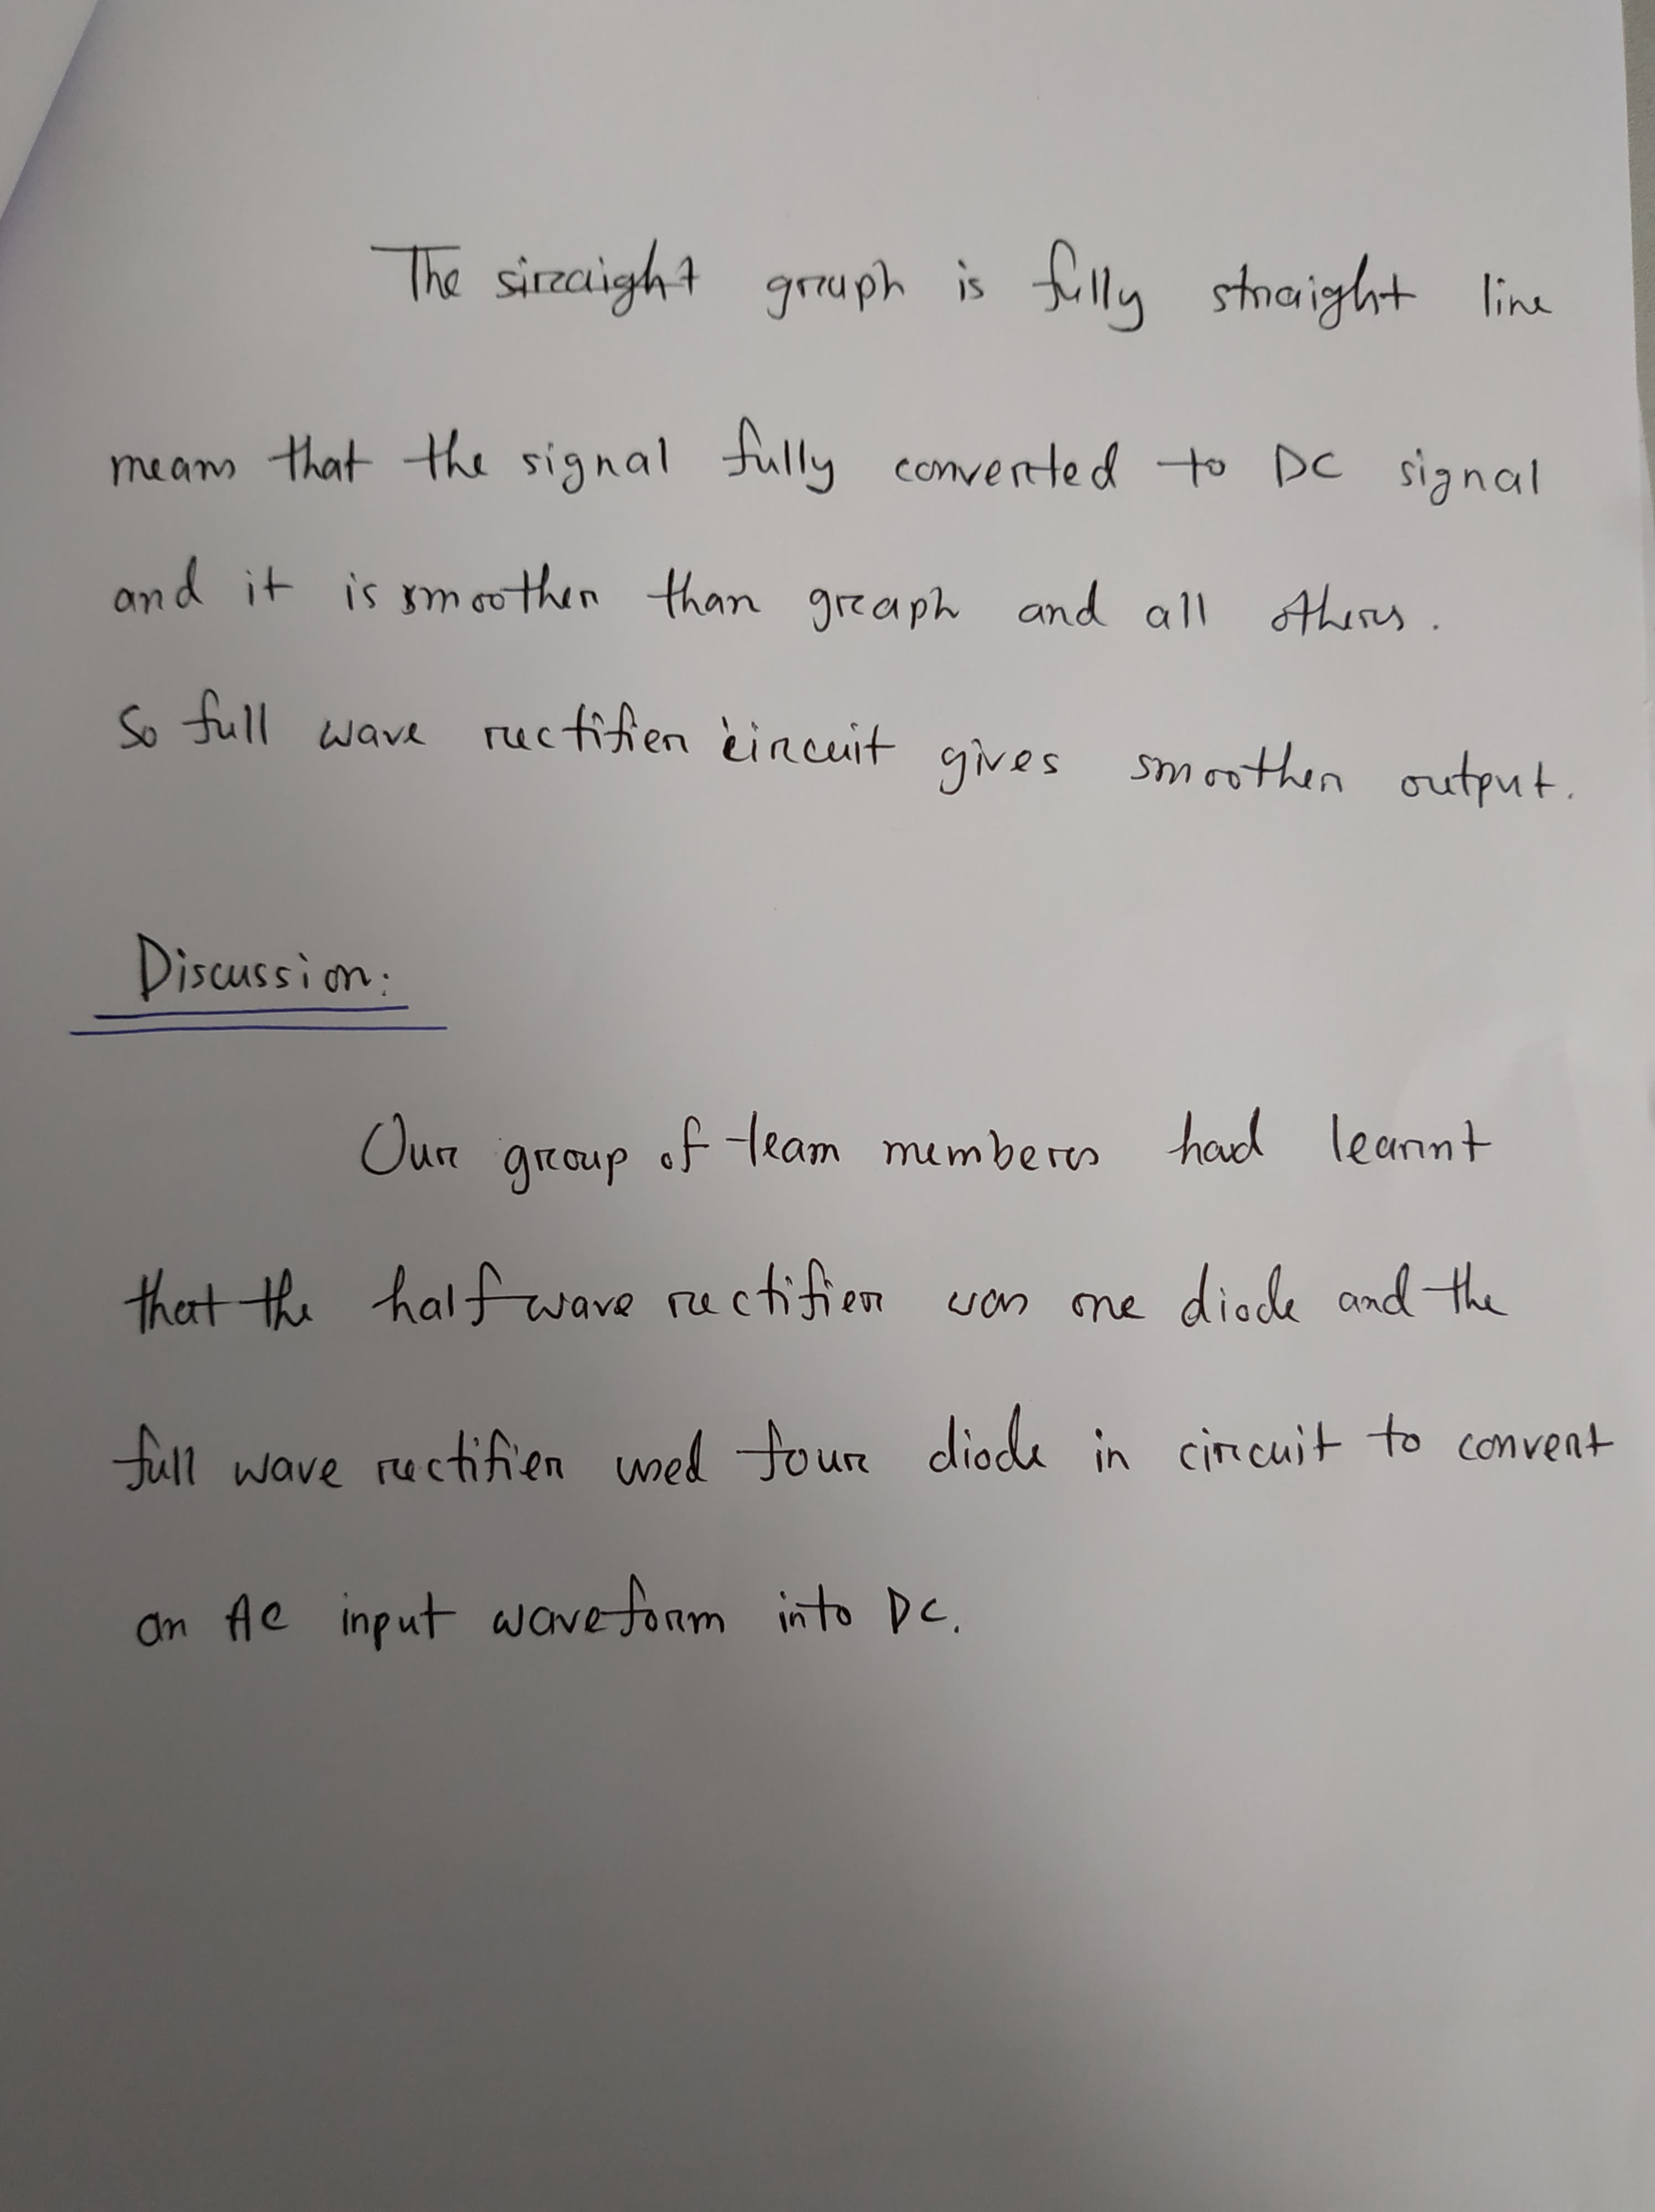 The straight graph is fully straight line
means that the signal fully converted to DC signal
and it is smoother than graph and all others.
So full wave rectifier circuit gives smoother output.
Discussion:
Our group of team members had learnt
that the half wave rectifier was one diode and the
full wave rectifier used four diode in circuit to convert
an AC input waveform into DC.